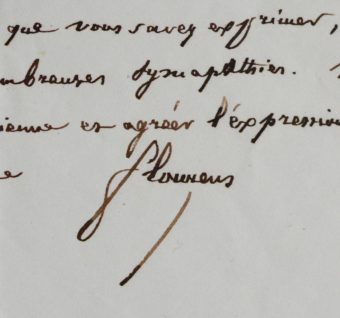 que vous savez exprimer,
mbreuses sympathies.
ienne et agréer l'expression
e Flourens